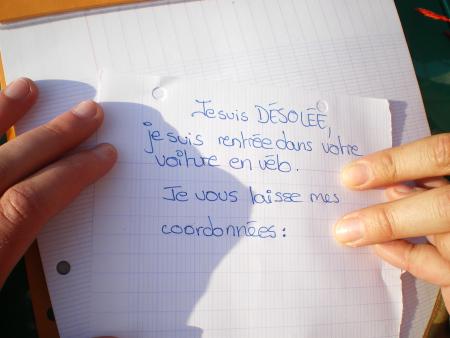 Je suis DÉSOLÉE,
je suis rentrée dans votre
voiture en vélo.
Je vous laisse mes
coordonnées :